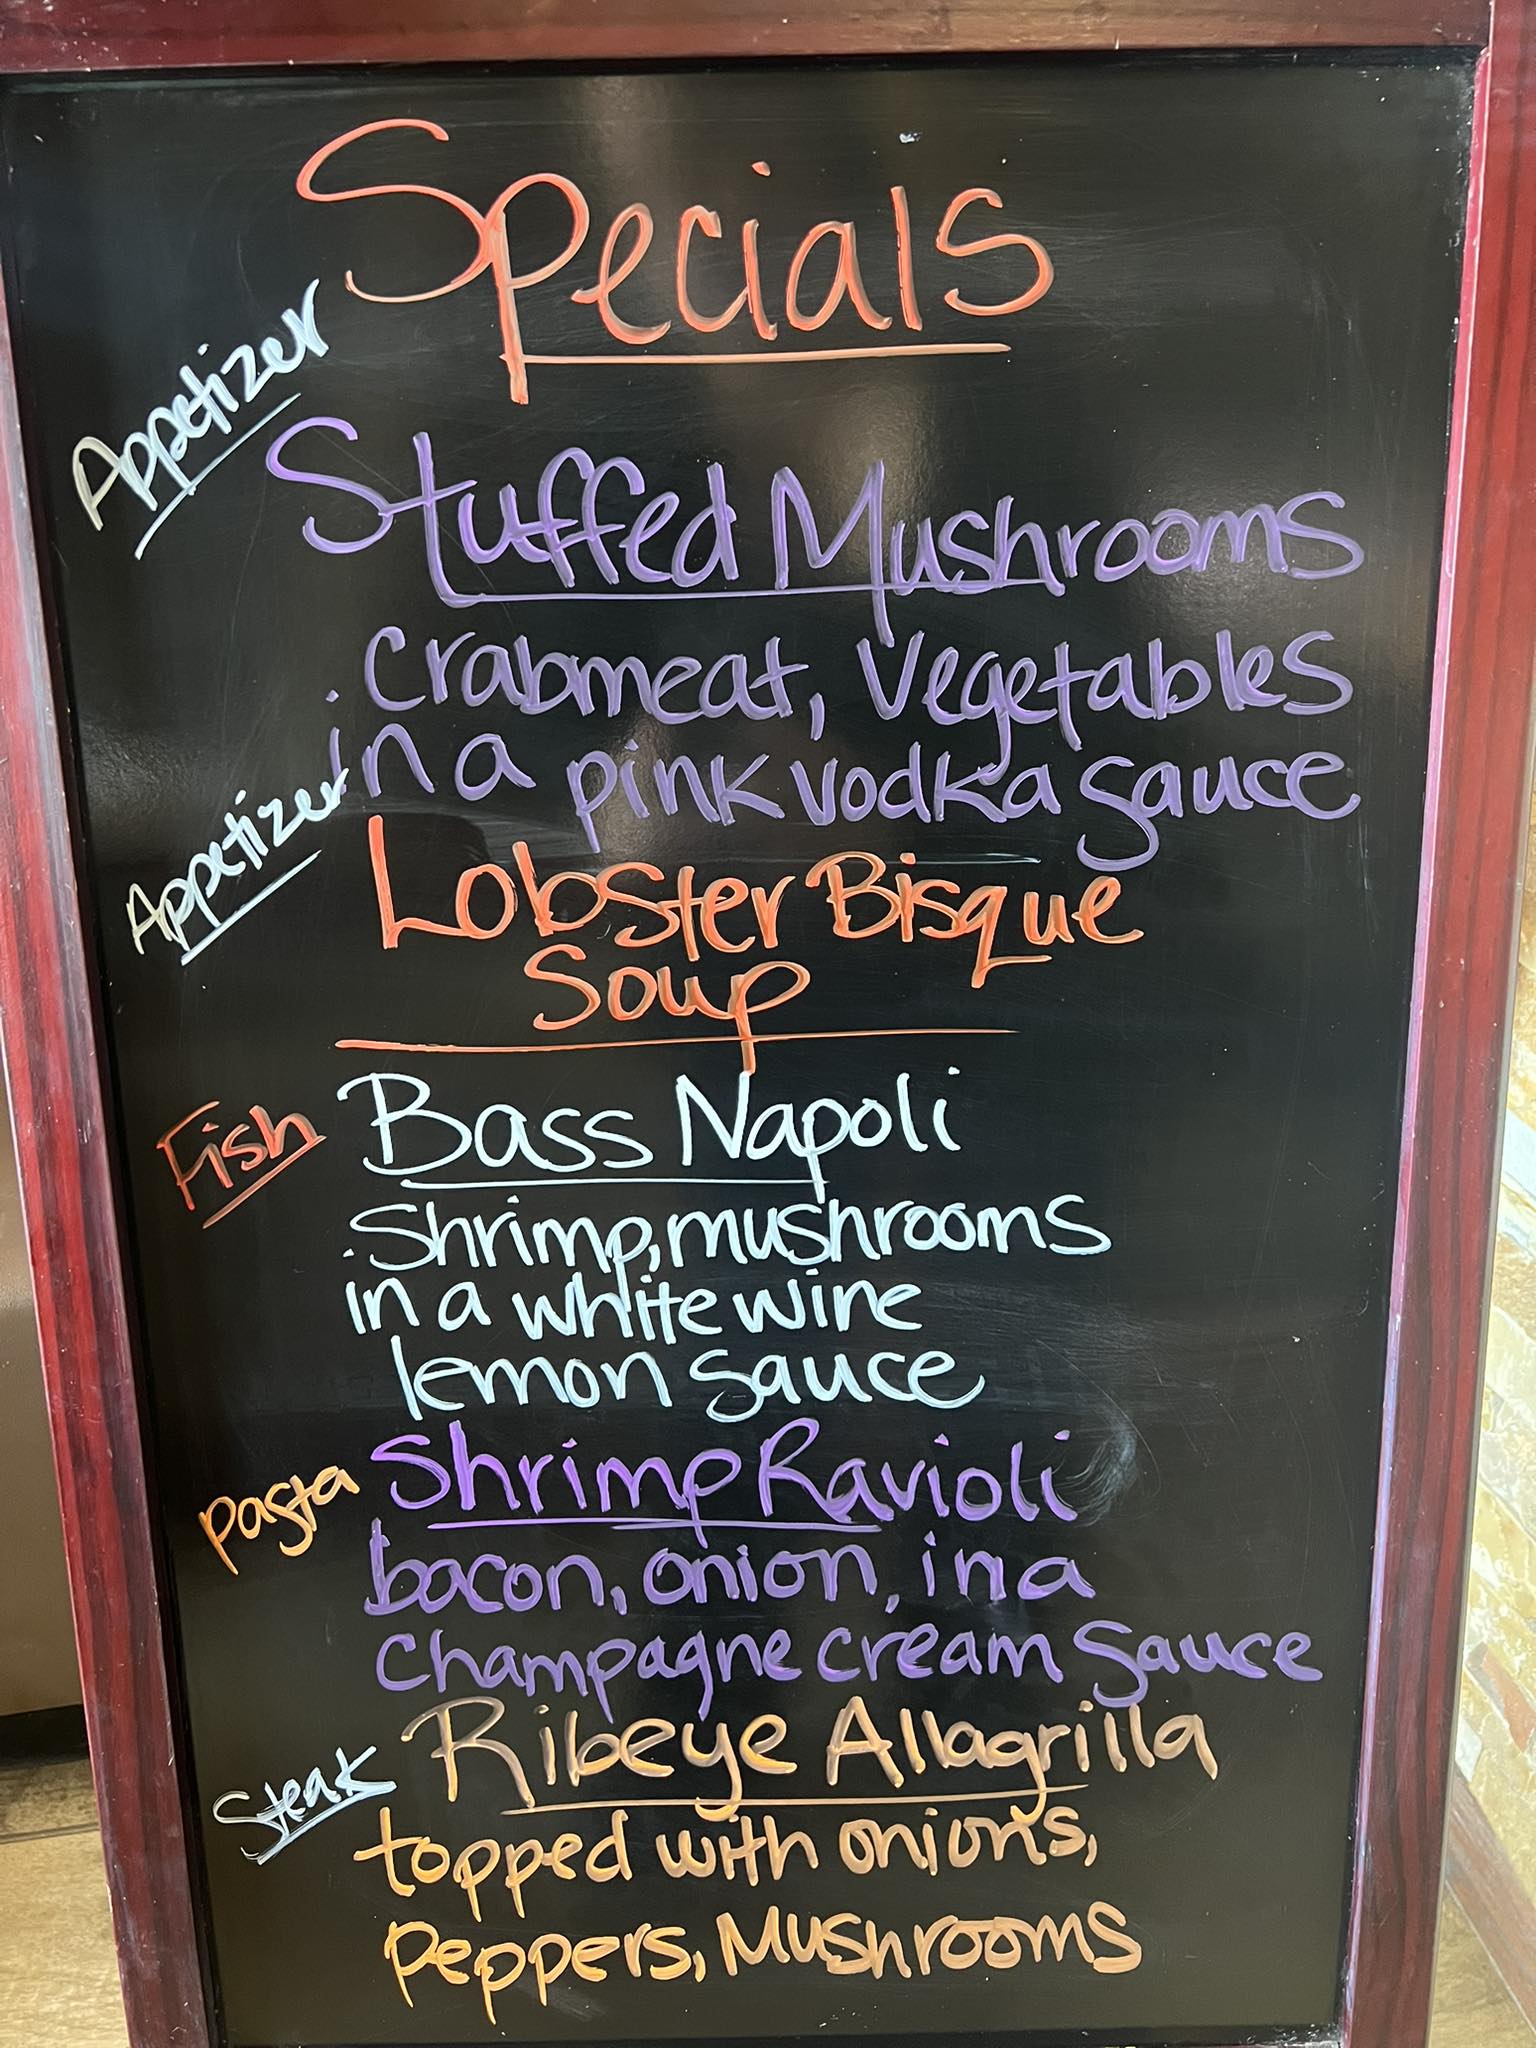 Specials
Appetizer
Stuffed Mushrooms
crabmeat, vegetables
in a pink vodka sauce
Appetizer
Lobster Bisque
Soup
Fish
Bass Napoli
Shrimp, mushrooms
in a white wine
lemon sauce
pasta
Shrimp Ravioli
bacon, onion, in a
champagne cream sauce
Steak
Ribeye Allagrilla
topped with onions,
Peppers, Mushrooms